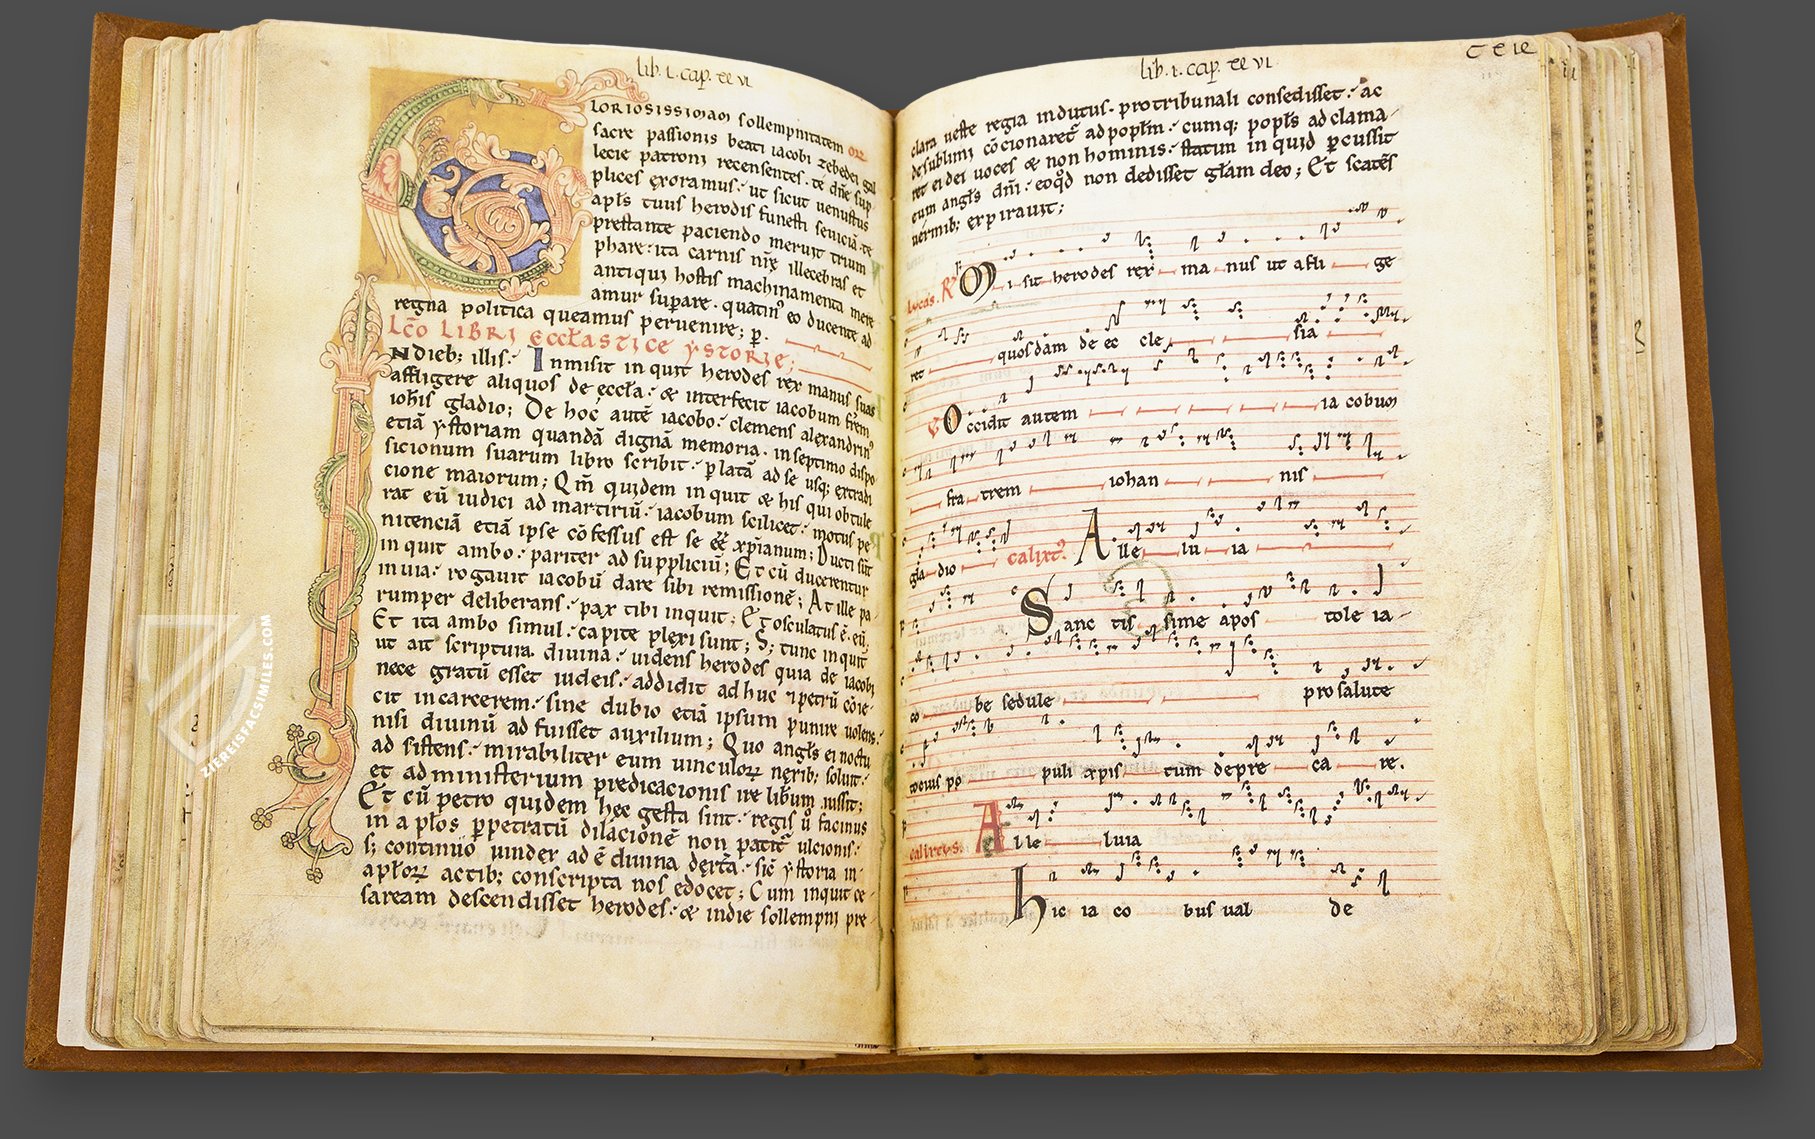 lib. i. cap. xx vi
LORIOSISSIMAM sollempnitatem
sacre passionis beati iacobi zebedei gal
lecie patroni recensentes. te dñe sup
plices exoramus. ut sicut uenustus
apl̃s tuus herodis funesti seuiciã te
prestante paciendo meruit trium
phare. ita carnis nr̃e illecebras et
antiqui hostis machinamenta mere
amur suꝑare. quatin᾿ eo ducente ad
regna politica queamus peruenire; p.
Lc̃o LIBRI eccl̃astice ystorie;
N dieb; illis. Inmisit inquit herodes rex manus suas
affligere aliquos de eccl̃a. & interfecit iacobum fr̃em
ioh̃is gladio; De hoc autẽ iacobo. clemens alexandrin᾿
etiã ystoriam quandã dignã memoria. in septimo dispo
sicionum suarum libro scribit. ꝑlatã ad se usq; ex tradi
cione maiorum; Qm̃ quidem inquit & his qui obtule
rat eũ iudici ad martiriũ. iacobum scilicet. motus pe
nitenciã etiã ipse cõfessus est se ee xp̃ianum; Ducti sũt
inquit ambo. pariter ad suppliciũ; Et cũ ducerentur
in uia. rogauit iacobũ dare sibi remissionẽ; At ille pa
rumper deliberans. pax tibi inquit; Et osculatus ẽ eũ;
Et ita ambo simul. capite plexi sunt; S; tunc inquit
ut ait scriptura diuina. uidens herodes quia de iacobi
nece gratũ esset iudeis. addidit adhuc ⁊ petrũ cõie
cit in carcerem. sine dubio etiã ipsum punire uolens.
nisi diuinũ adfuisset auxilium; Quo angl̃s ei noctu
adsistens. mirabiliter eum uinculoꝝ nexib; soluit.
et ad ministerium predicacionis ire lib̃um iussit;
Et cũ petro quidem hec gesta sint. regis u᾿o facinus
in apl̃os ꝑpetratũ dilacionẽ non patit᾿ ulcionis.
s; continuo uindex adẽ diuina dext᾿a. sic᾿ ystoria in
apl̃oꝝ actib; conscripta nos edocet; Cum inquit ce
saream descendisset herodes. & in die sollempni pre
lib. i. cap. xx vi
clara ueste regia indutus. pro tribunali consedisset. ac
de sublimi cõcionaret᾿ ad popl̃m. cumq; popl̃s adclama
ret ei dei uoces & non hominis. statim inquid ꝑcussit
eum angl̃s dñi. eo qd̃ non dedisset gl̃am deo; Et scatẽs
uermib; expirauit;
lucas. R᾿ Misit herodes rex manus ut afflige
ret quosdam de ec cle sia
V Occidit autem iacobum
fra trem iohan nis
gla dio calixt᾿. Alle lu ia
Sanc tis sime apos tole ia
co be sedule pro salute
tocius po puli xpis tum depre ca re.
calixtus. Alle luia
hic ia co bus ual de
ZIEREISFACSIMILES.COM